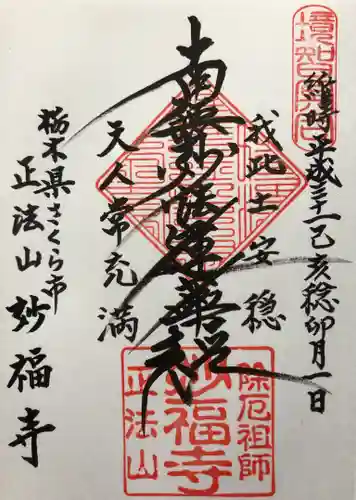 維時平成三十一己亥稔卯月一日
我此土安穏
南無妙法蓮華経
天人常充満
栃木県さくら市
正法山 妙福寺
境知
除厄祖師
妙福寺
正法山